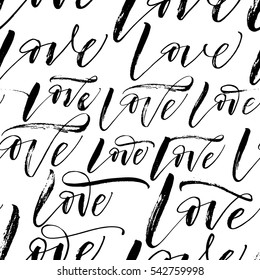 Love Love
Love Love
Love Love Love
Love Love Love
Love Love
Love Love
Love
shutterstock.com · 542759998